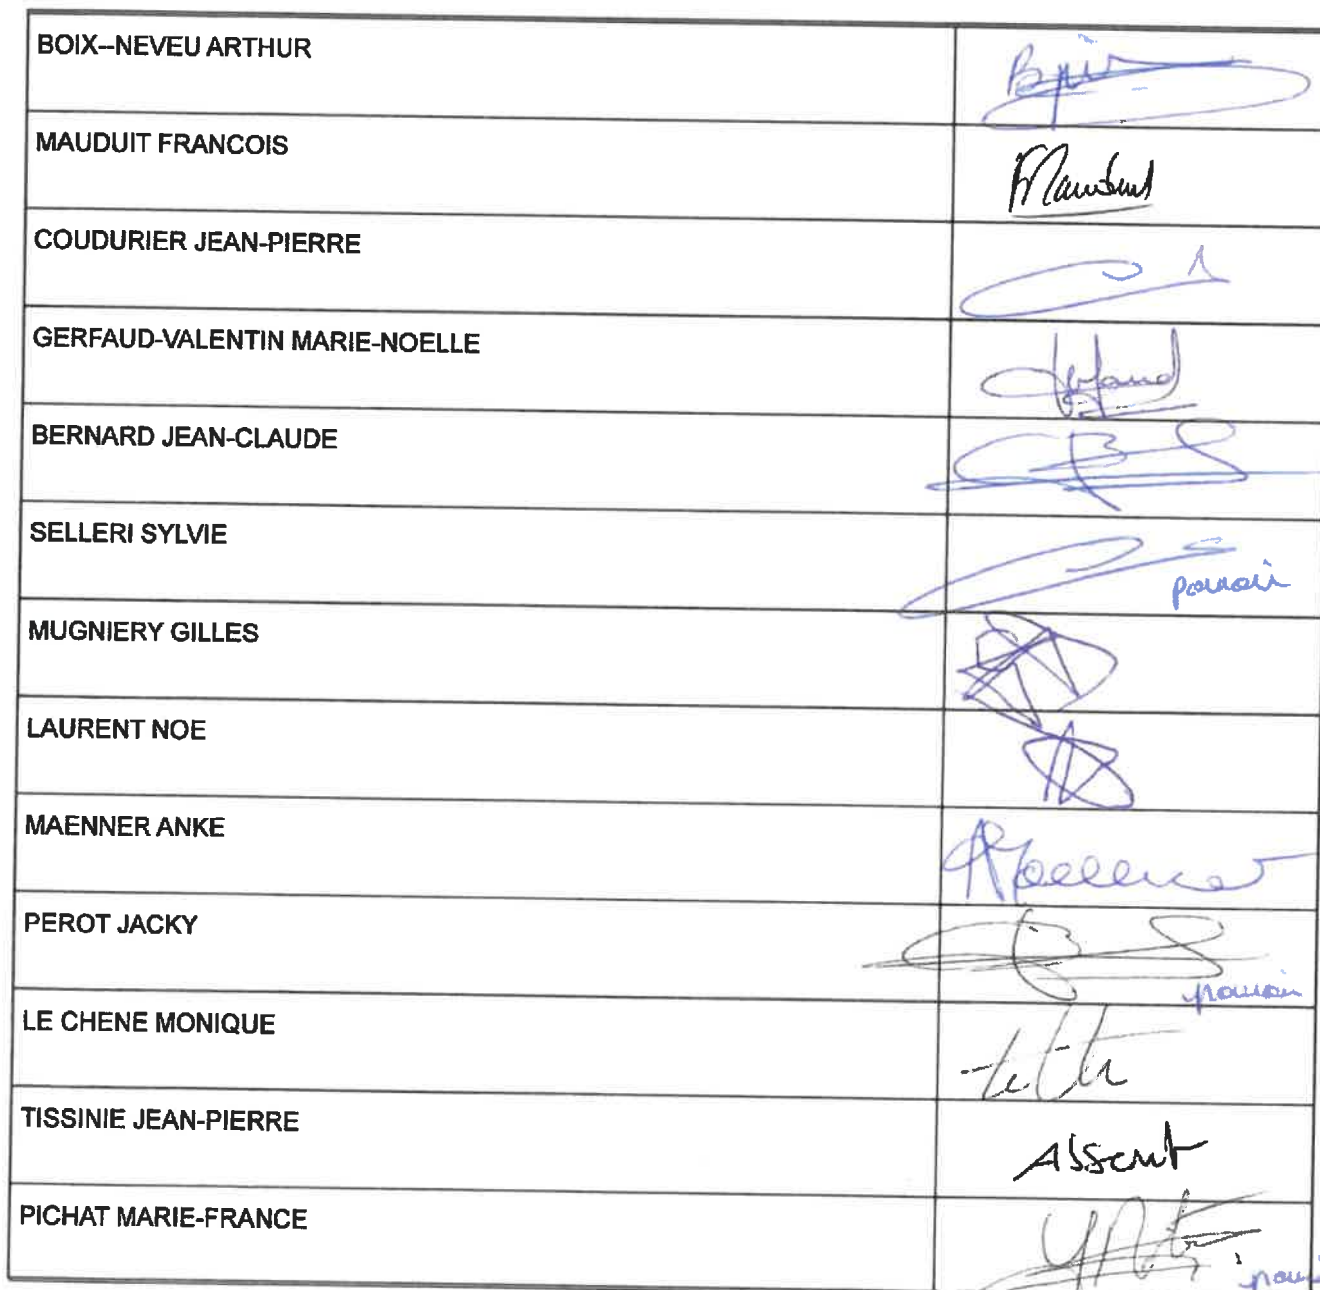 BOIX--NEVEU ARTHUR
MAUDUIT FRANCOIS
COUDURIER JEAN-PIERRE
GERFAUD-VALENTIN MARIE-NOELLE
BERNARD JEAN-CLAUDE
SELLERI SYLVIE
pouvoir
MUGNIERY GILLES
LAURENT NOE
MAENNER ANKE
PEROT JACKY
pouvoir
LE CHENE MONIQUE
TISSINIE JEAN-PIERRE
Absent
PICHAT MARIE-FRANCE